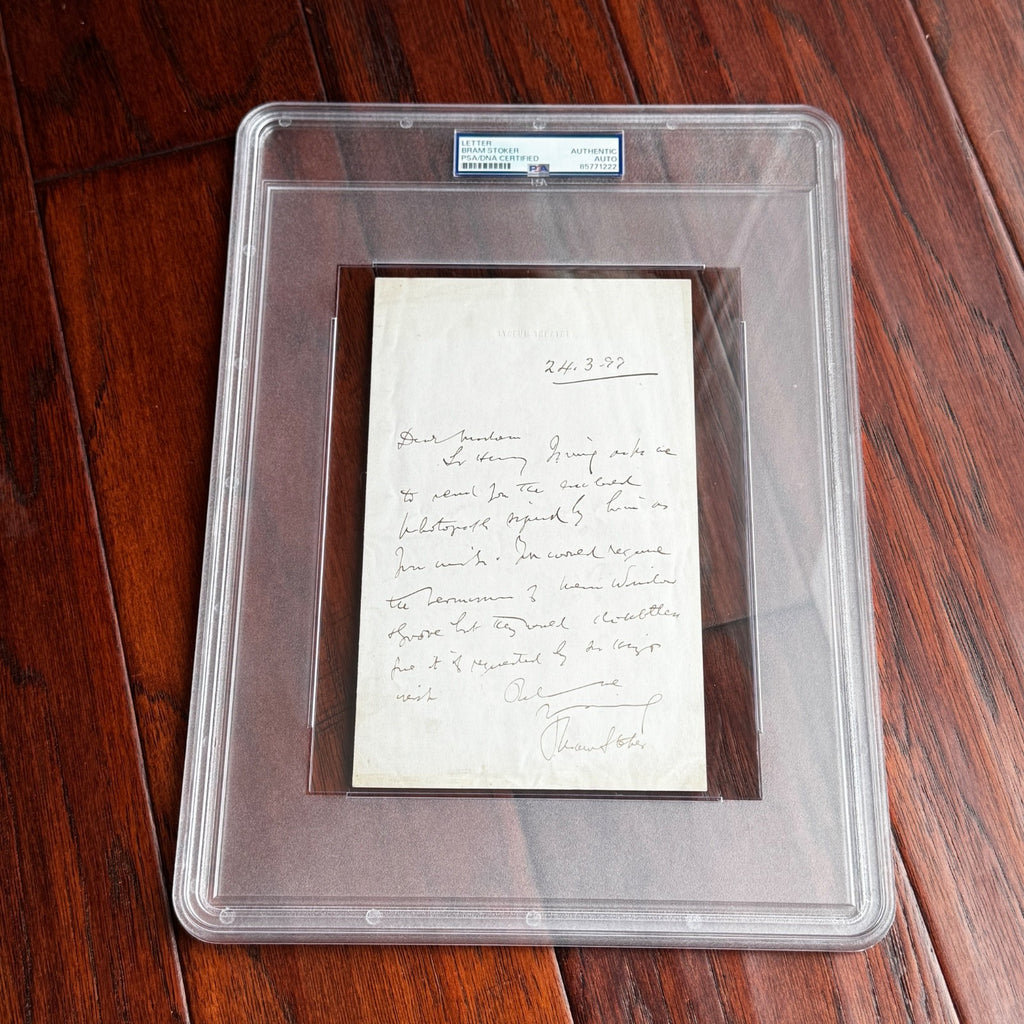 LETTER
BRAM STOKER
PSA/DNA CERTIFIED
AUTHENTIC
AUTO
85771222
PSA
LYCEUM THEATRE
24.3.97
Dear Madam
Sir Henry Irving asks me
to send you the enclosed
photograph signed by him as
you wish. You would require
the permission of Window
Grove but they would doubtless
give it if requested by Sir
wish
Bram Stoker